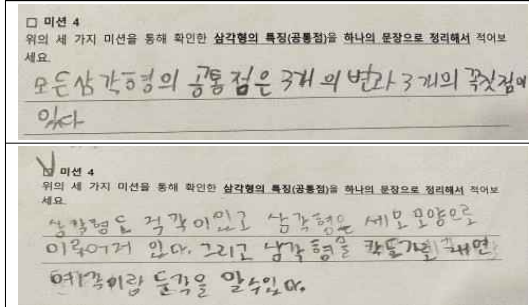 □ 미션 4
위의 세 가지 미션을 통해 확인한 삼각형의 특징(공통점)을 하나의 문장으로 정리해서 적어보
세요.
모든 삼각형의 공통점은 3개의 변과 3개의 꼭짓점이
있다
□ 미션 4
위의 세 가지 미션을 통해 확인한 삼각형의 특징(공통점)을 하나의 문장으로 정리해서 적어보
세요.
삼각형도 직각이있고 삼각형은 세모모양으로
이루어저 있다. 그리고 삼각형을
둔각을 알수있다.